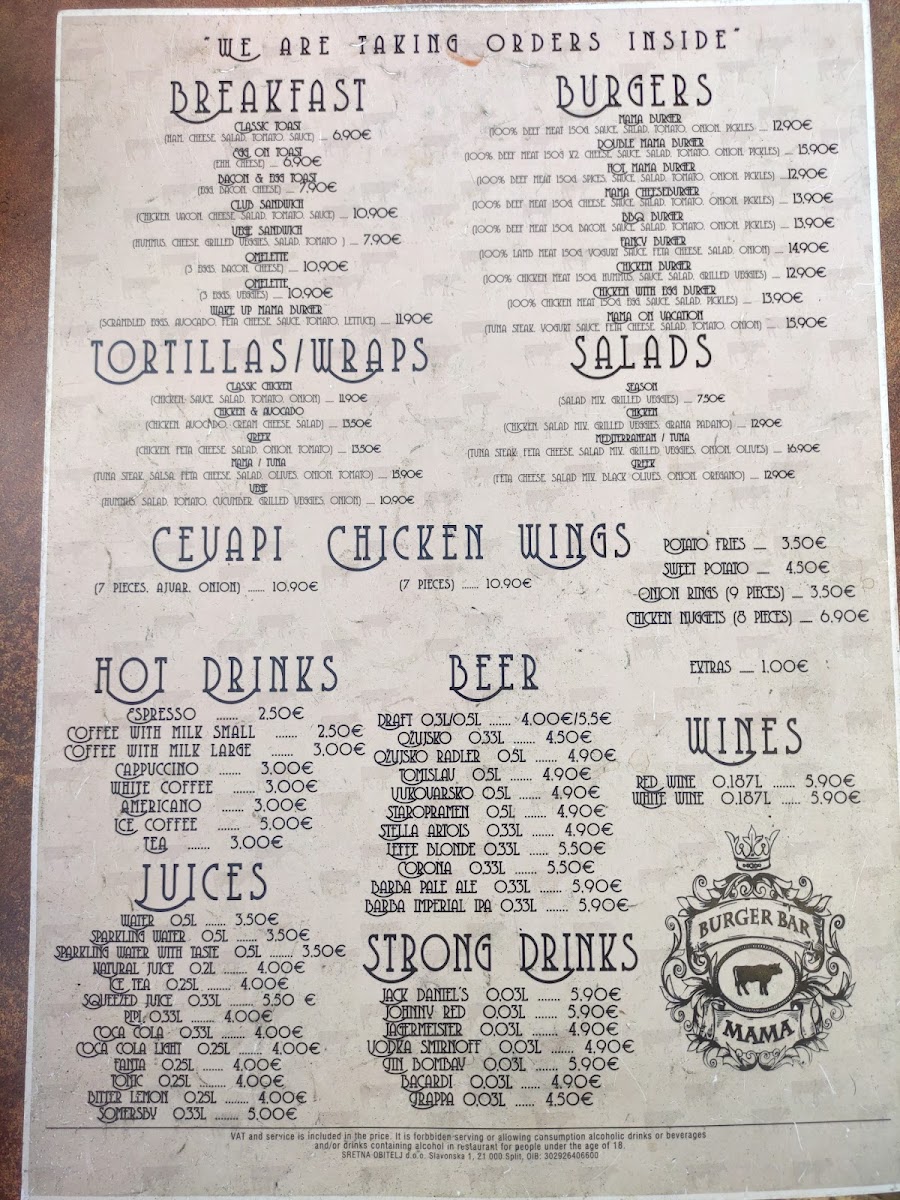 "WE ARE TAKING ORDERS INSIDE"
BREAKFAST
CLASSIC TOAST
(HAM, CHEESE, SALAD, TOMATO, SAUCE) .... 6,90€
EGG ON TOAST
(EHH, CHEESE) .... 6,90€
BACON & EGG TOAST
(EGG, BACON, CHEESE) .... 7,90€
CLUB SANDWICH
(CHICKEN, VACON, CHEESE, SALAD, TOMATO, SAUCE) .... 10,90€
VEGE SANDWICH
(HUMMUS, CHEESE, GRILLED VEGGIES, SALAD, TOMATO ) .... 7,90€
OMELETTE
(3 EGGS, BACON, CHEESE) .... 10,90€
OMELETTE
(3 EGGS, VEGGIES) .... 10,90€
WAKE UP MAMA BURGER
(SCRAMBLED EGGS, AVOCADO, FETA CHEESE, SAUCE, TOMATO, LETTUCE) .... 11,90€
BURGERS
MAMA BURGER
(100% BEEF MEAT 150G, SAUCE, SALAD, TOMATO, ONION, PICKLES .... 12,90€
DOUBLE MAMA BURGER
(100% BEEF MEAT 150G X2, CHEESE, SAUCE, SALAD, TOMATO, ONION, PICKLES) .... 15,90€
HOT MAMA BURGER
(100% BEEF MEAT 150G, SPICES, SAUCE, SALAD, TOMATO, ONION, PICKLES) ....12,90€
MAMA CHEESEBURGER
(100% BEEF MEAT 150G, CHEESE, SAUCE, SALAD, TOMATO, ONION, PICKLES) .... 13,90€
BBQ BURGER
(100% BEEF MEAT 150G, BACON, SAUCE, SALAD, TOMATO, ONION, PICKLES) .... 13,90€
FANCY BURGER
(100% LAMB MEAT 150G, YOGURT SAUCE, FETA CHEESE, SALAD, ONION) .... 14,90€
CHICKEN BURGER
(100% CHICKEN MEAT 150G, HUMMUS, SAUCE, SALAD, GRILLED VEGGIES) .... 12,90€
CHICKEN WITH EGG BURGER
(100% CHICKEN MEAT 150G, EGG, SAUCE, SALAD, PICKLES) .... 13,90€
MAMA ON VACATION
(TUNA STEAK, YOGURT SAUCE, FETA CHEESE, SALAD, TOMATO, ONION) .... 15,90€
TORTILLAS/WRAPS
CLASSIC CHICKEN
(CHICKEN, SAUCE, SALAD, TOMATO, ONION) .... 11,90€
CHICKEN & AVOCADO
(CHICKEN, AVOCADO, CREAM CHEESE, SALAD) .... 13,50€
GREEK
(CHICKEN, FETA CHEESE, SALAD, ONION, TOMATO) .... 13,50€
MAMA / TUNA
(TUNA STEAK, SALSA, FETA CHEESE, SALAD, OLIVES, ONION, TOMATO) .... 15,90€
VEGE
(HUMMUS, SALAD, TOMATO, CUCUMBER, GRILLED VEGGIES, ONION) .... 10,90€
SALADS
SEASON
(SALAD MIX, GRILLED VEGGIES) .... 7,50€
CHICKEN
(CHICKEN, SALAD MIX, GRILLED VEGGIES, GRANA PADANO) .... 12,90€
MEDITERRANEAN / TUNA
(TUNA STEAK, FETA CHEESE, SALAD MIX, GRILLED VEGGIES, ONION, OLIVES) .... 16,90€
GREEK
(FETA CHEESE, SALAD MIX, BLACK OLIVES, ONION, OREGANO) .... 12,90€
CEVAPI
(7 PIECES, AJVAR, ONION) ...... 10,90€
CHICKEN WINGS
(7 PIECES) ...... 10,90€
POTATO FRIES .... 3,50€
SWEET POTATO .... 4,50€
ONION RINGS (9 PIECES) .... 3,50€
CHICKEN NUGGETS (8 PIECES) .... 6,90€
EXTRAS .... 1,00€
HOT DRINKS
ESPRESSO ...... 2,50€
COFFEE WITH MILK SMALL ...... 2,50€
COFFEE WITH MILK LARGE ...... 3,00€
CAPPUCCINO ...... 3,00€
WHITE COFFEE ...... 3,00€
AMERICANO ...... 3,00€
ICE COFFEE ...... 5,00€
TEA ...... 3,00€
JUICES
WATER 0,5L ....... 3,50€
SPARKLING WATER 0,5L ....... 3,50€
SPARKLING WATER WITH TASTE 0,5L ....... 3,50€
NATURAL JUICE 0,2L ....... 4,00€
ICE TEA 0,25L ....... 4,00€
SQUEEZED JUICE 0,33L ....... 5,50 €
PIPI 0,33L ....... 4,00€
COCA COLA 0,33L ....... 4,00€
COCA COLA LIGHT 0,25L ....... 4,00€
FANTA 0,25L ....... 4,00€
TONIC 0,25L ........ 4,00€
BITTER LEMON 0,25L ....... 4,00€
SOMERSBY 0,33L ...... 5,00€
BEER
DRAFT 0,3L/0,5L ....... 4,00€/5,5€
OŽUJSKO 0,33L ...... 4,50€
OŽUJSKO RADLER 0,5L ...... 4,90€
TOMISLAV 0,5L ...... 4,90€
VUKOVARSKO 0,5L ...... 4,90€
STAROPRAMEN 0,5L ...... 4,90€
STELLA ARTOIS 0,33L ...... 4,90€
LEFFE BLONDE 0,33L ...... 5,50€
CORONA 0,33L ...... 5,50€
BARBA PALE ALE 0,33L ...... 5,90€
BARBA IMPERIAL IPA 0,33L ...... 5,90€
STRONG DRINKS
JACK DANIEL'S 0,03L ....... 5,90€
JOHNNY RED 0,03L ....... 5,90€
JAGERMEISTER 0,03L ...... 4,90€
VODKA SMIRNOFF 0,03L ...... 4,90€
GIN BOMBAY 0,03L ...... 5,90€
BACARDI 0,03L ...... 4,90€
GRAPPA 0,03L ...... 4,50€
WINES
RED WINE 0,187L ...... 5,90€
WHITE WINE 0,187L ...... 5,90€
BURGER BAR
MAMA
VAT and service is included in the price. It is forbbiden serving or allowing consumption alcoholic drinks or beverages
and/or drinks containing alcohol in restaurant for people under the age of 18.
SRETNA OBITELJ d.o.o. Slavonska 1, 21 000 Split, OIB: 302926406600